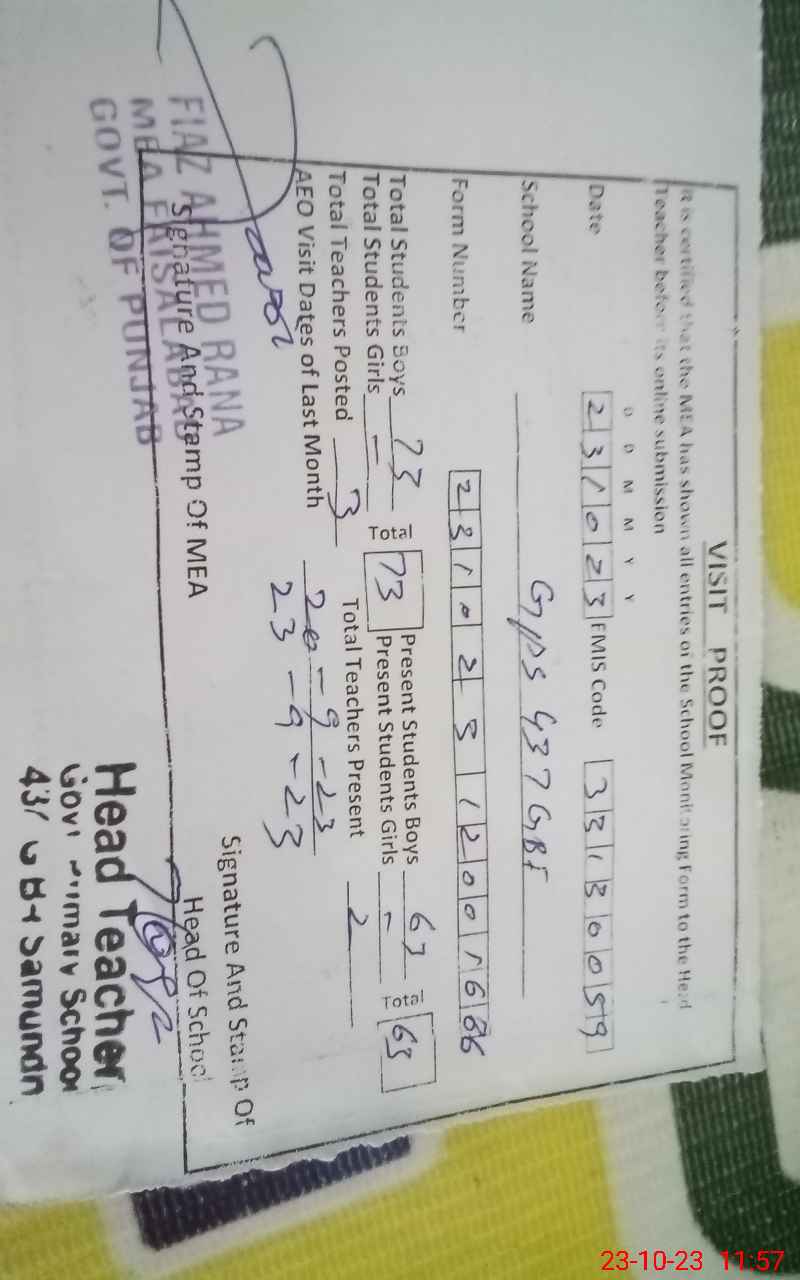 VISIT PROOF
It is certified that the MEA has shown all entries of the School Monitoring Form to the Head
Teacher before its online submission
D D M M Y Y
Date 2 3 1 0 2 3 EMIS Code 3 3 1 3 0 0 5 9
School Name GPS 437 GB
Form Number 2 3 1 0 2 3 1 2 0 0 1 6
Total Students Boys 73 Total 73 Present Students Boys 63 Total 63
Total Students Girls — Present Students Girls -
Total Teachers Posted 3 Total Teachers Present 2
AEO Visit Dates of Last Month 20-9-23
23-9-23
Signature And Stamp Of MEA
FIAZ AHMED RANA
MEA FAISALABAD
GOVT. OF PUNJAB
Signature And Stamp Of
Head Of School
Head Teacher
Govt Primary School
437 GB
23-10-23 11:57